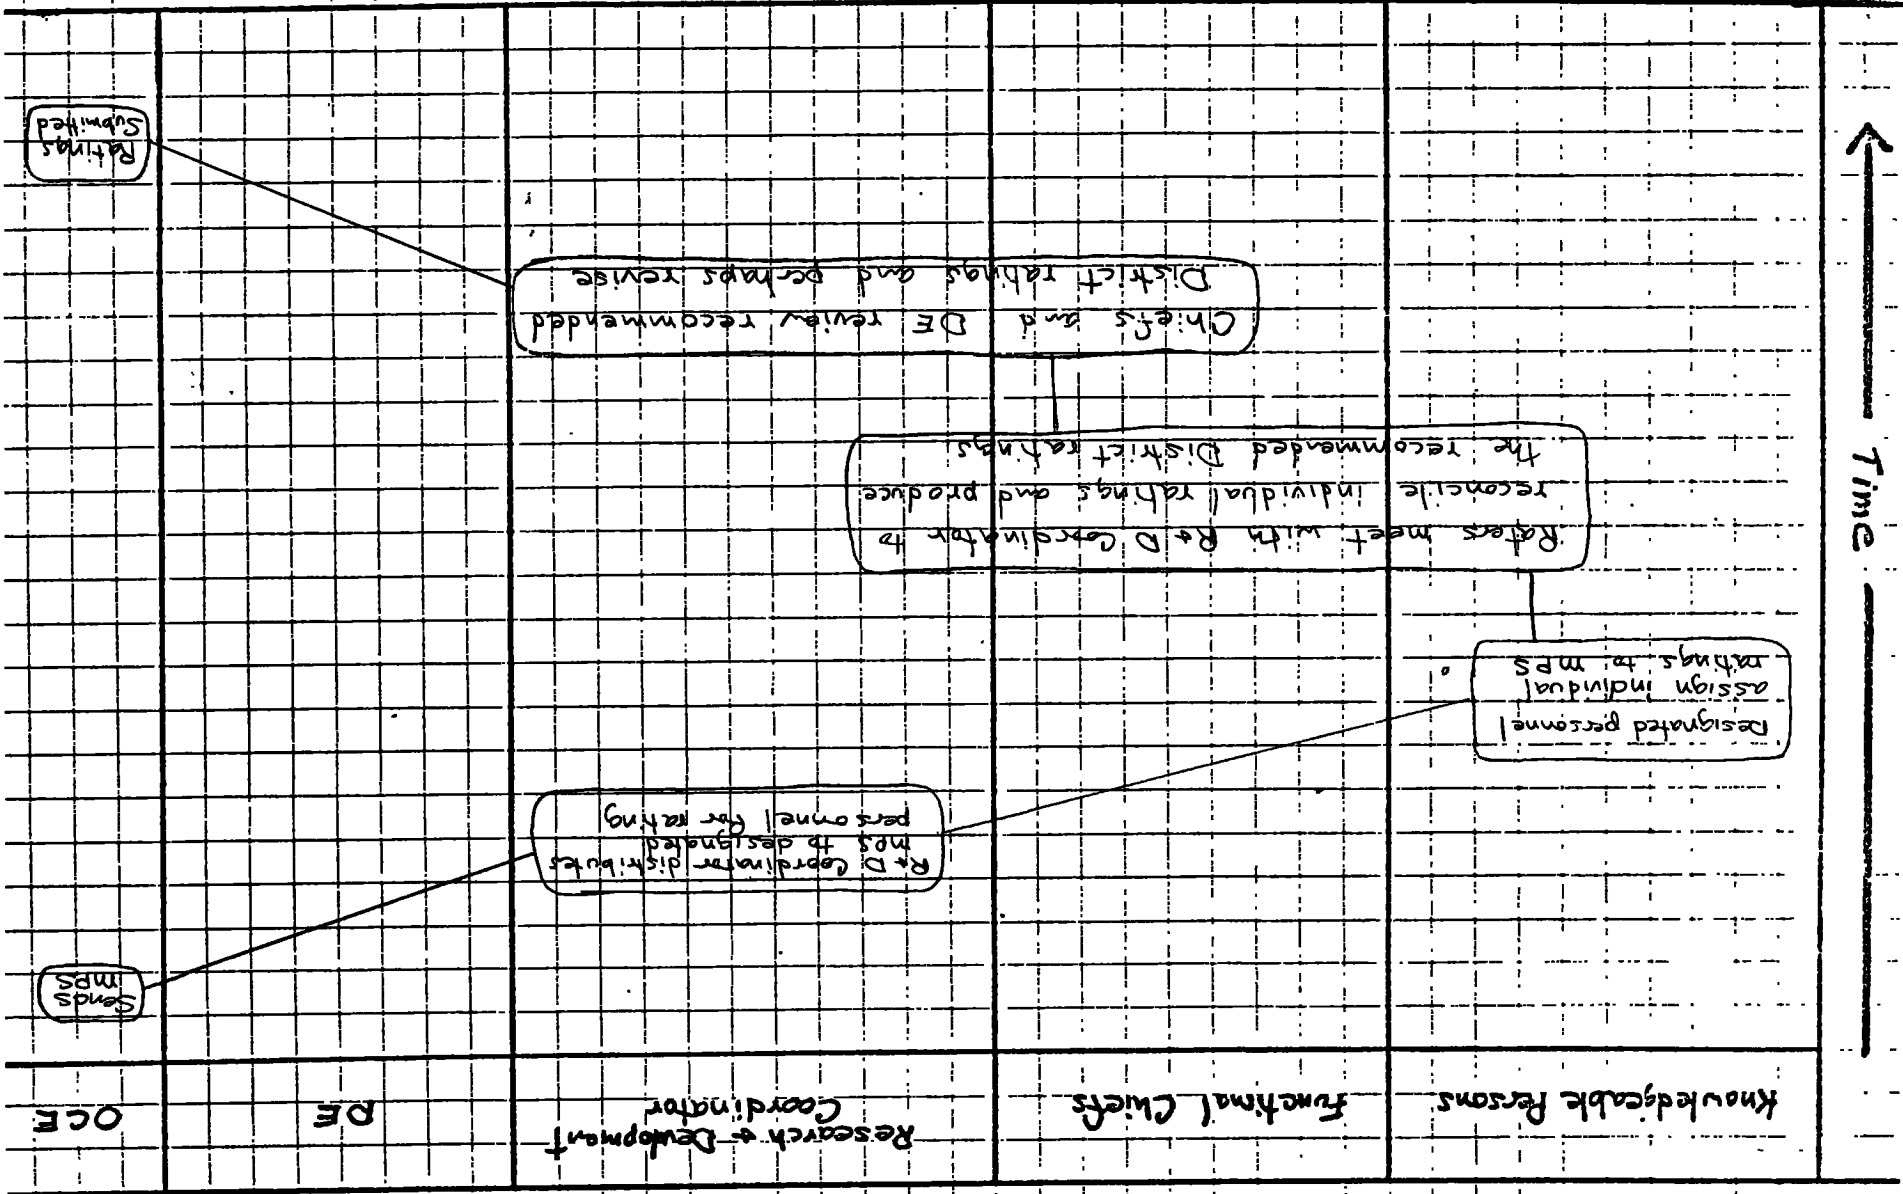 Knowledgeable Persons
Functional Chiefs
Research & Development
Coordinator
DE
OCE
Time
Sends
MPS
R&D Coordinator distributes
MPS to designated
personnel for rating
Designated personnel
assign individual
ratings to MPS
Raters meet with R&D Coordinator to
reconcile individual ratings and produce
the recommended District ratings
Chiefs and DE review recommended
District ratings and perhaps revise
Ratings
Submitted